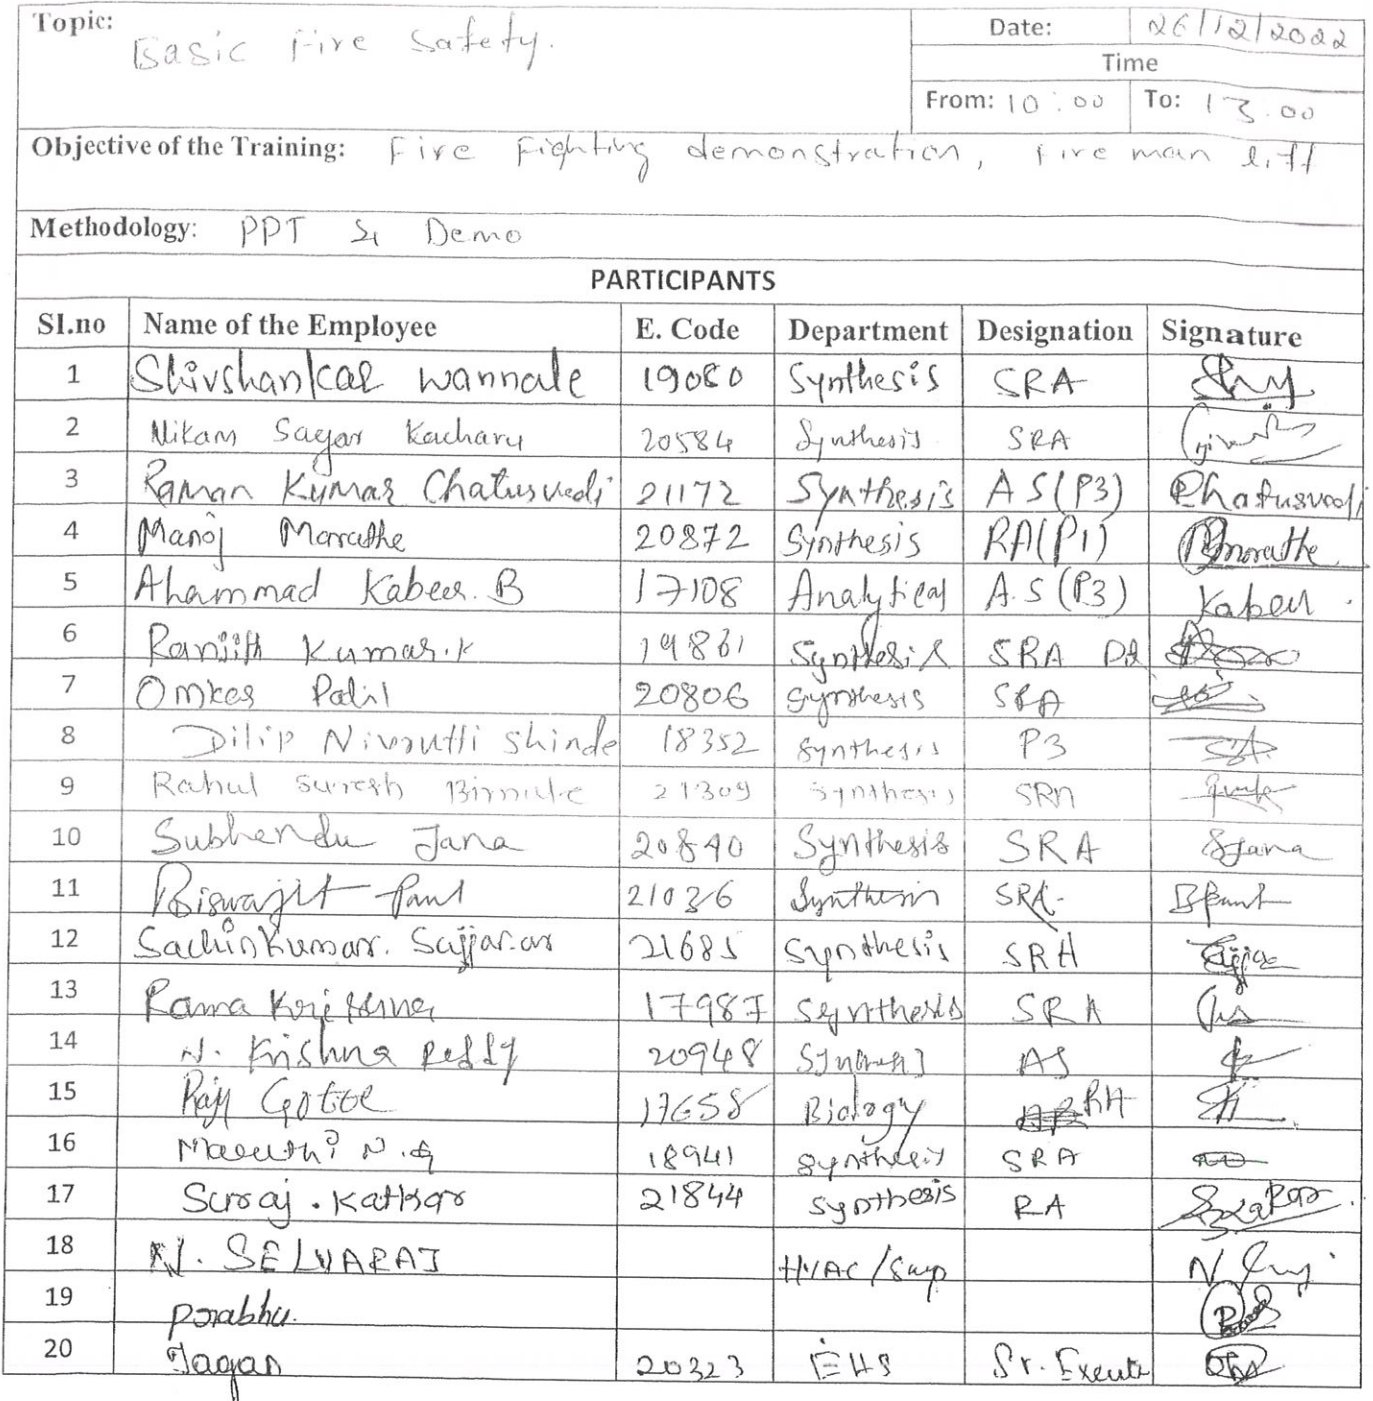 Topic: Basic Fire Safety. Date: 26/12/2022
Time
From: 10:00 To: 13.00
Objective of the Training: Fire Fighting demonstration, Fire man lift
Methodology: PPT & Demo
PARTICIPANTS
SI.no Name of the Employee E. Code Department Designation Signature
1 Shivshankar Wannale 19080 Synthesis SRA
2 Nikam Sagar Kacharu 20584 Synthesis SRA
3 Raman Kumar Chaturvedi 21172 Synthesis AS(P3) Chaturvedi
4 Manoj Marathe 20872 Synthesis RA(P1) Marathe
5 Ahammad Kabeer.B 17108 Analytical A.S(P3) Kabeer.
6 Ranjith Kumar.K 19831 Synthesis SRA
7 Omkar Patil 20806 Synthesis SRA
8 Dilip Nivrutti Shinde 18352 Synthesis P3
9 Rahul Suresh 21309 Synthesis SRA
10 Subhendu Jana 20840 Synthesis SRA SJana
11 Biswajit Paul 21036 Synthesis SRA BPaul
12 Sachinkumar. Sajjanar 21685 Synthesis SRA
13 Rama Krishna 17987 Synthesis SRA
14 N. Krishna Reddy 20948 Synthesis AS
15 Raju Gotoe 17658 Biology RA
16 Maruthi N.G 18941 Synthesis SRA
17 Suraj. Katkar 21844 Synthesis RA
18 N. SELVARAJ HVAC/Sup
19 Prabhu.
20 Jagan 20323 EHS Sr. Executi